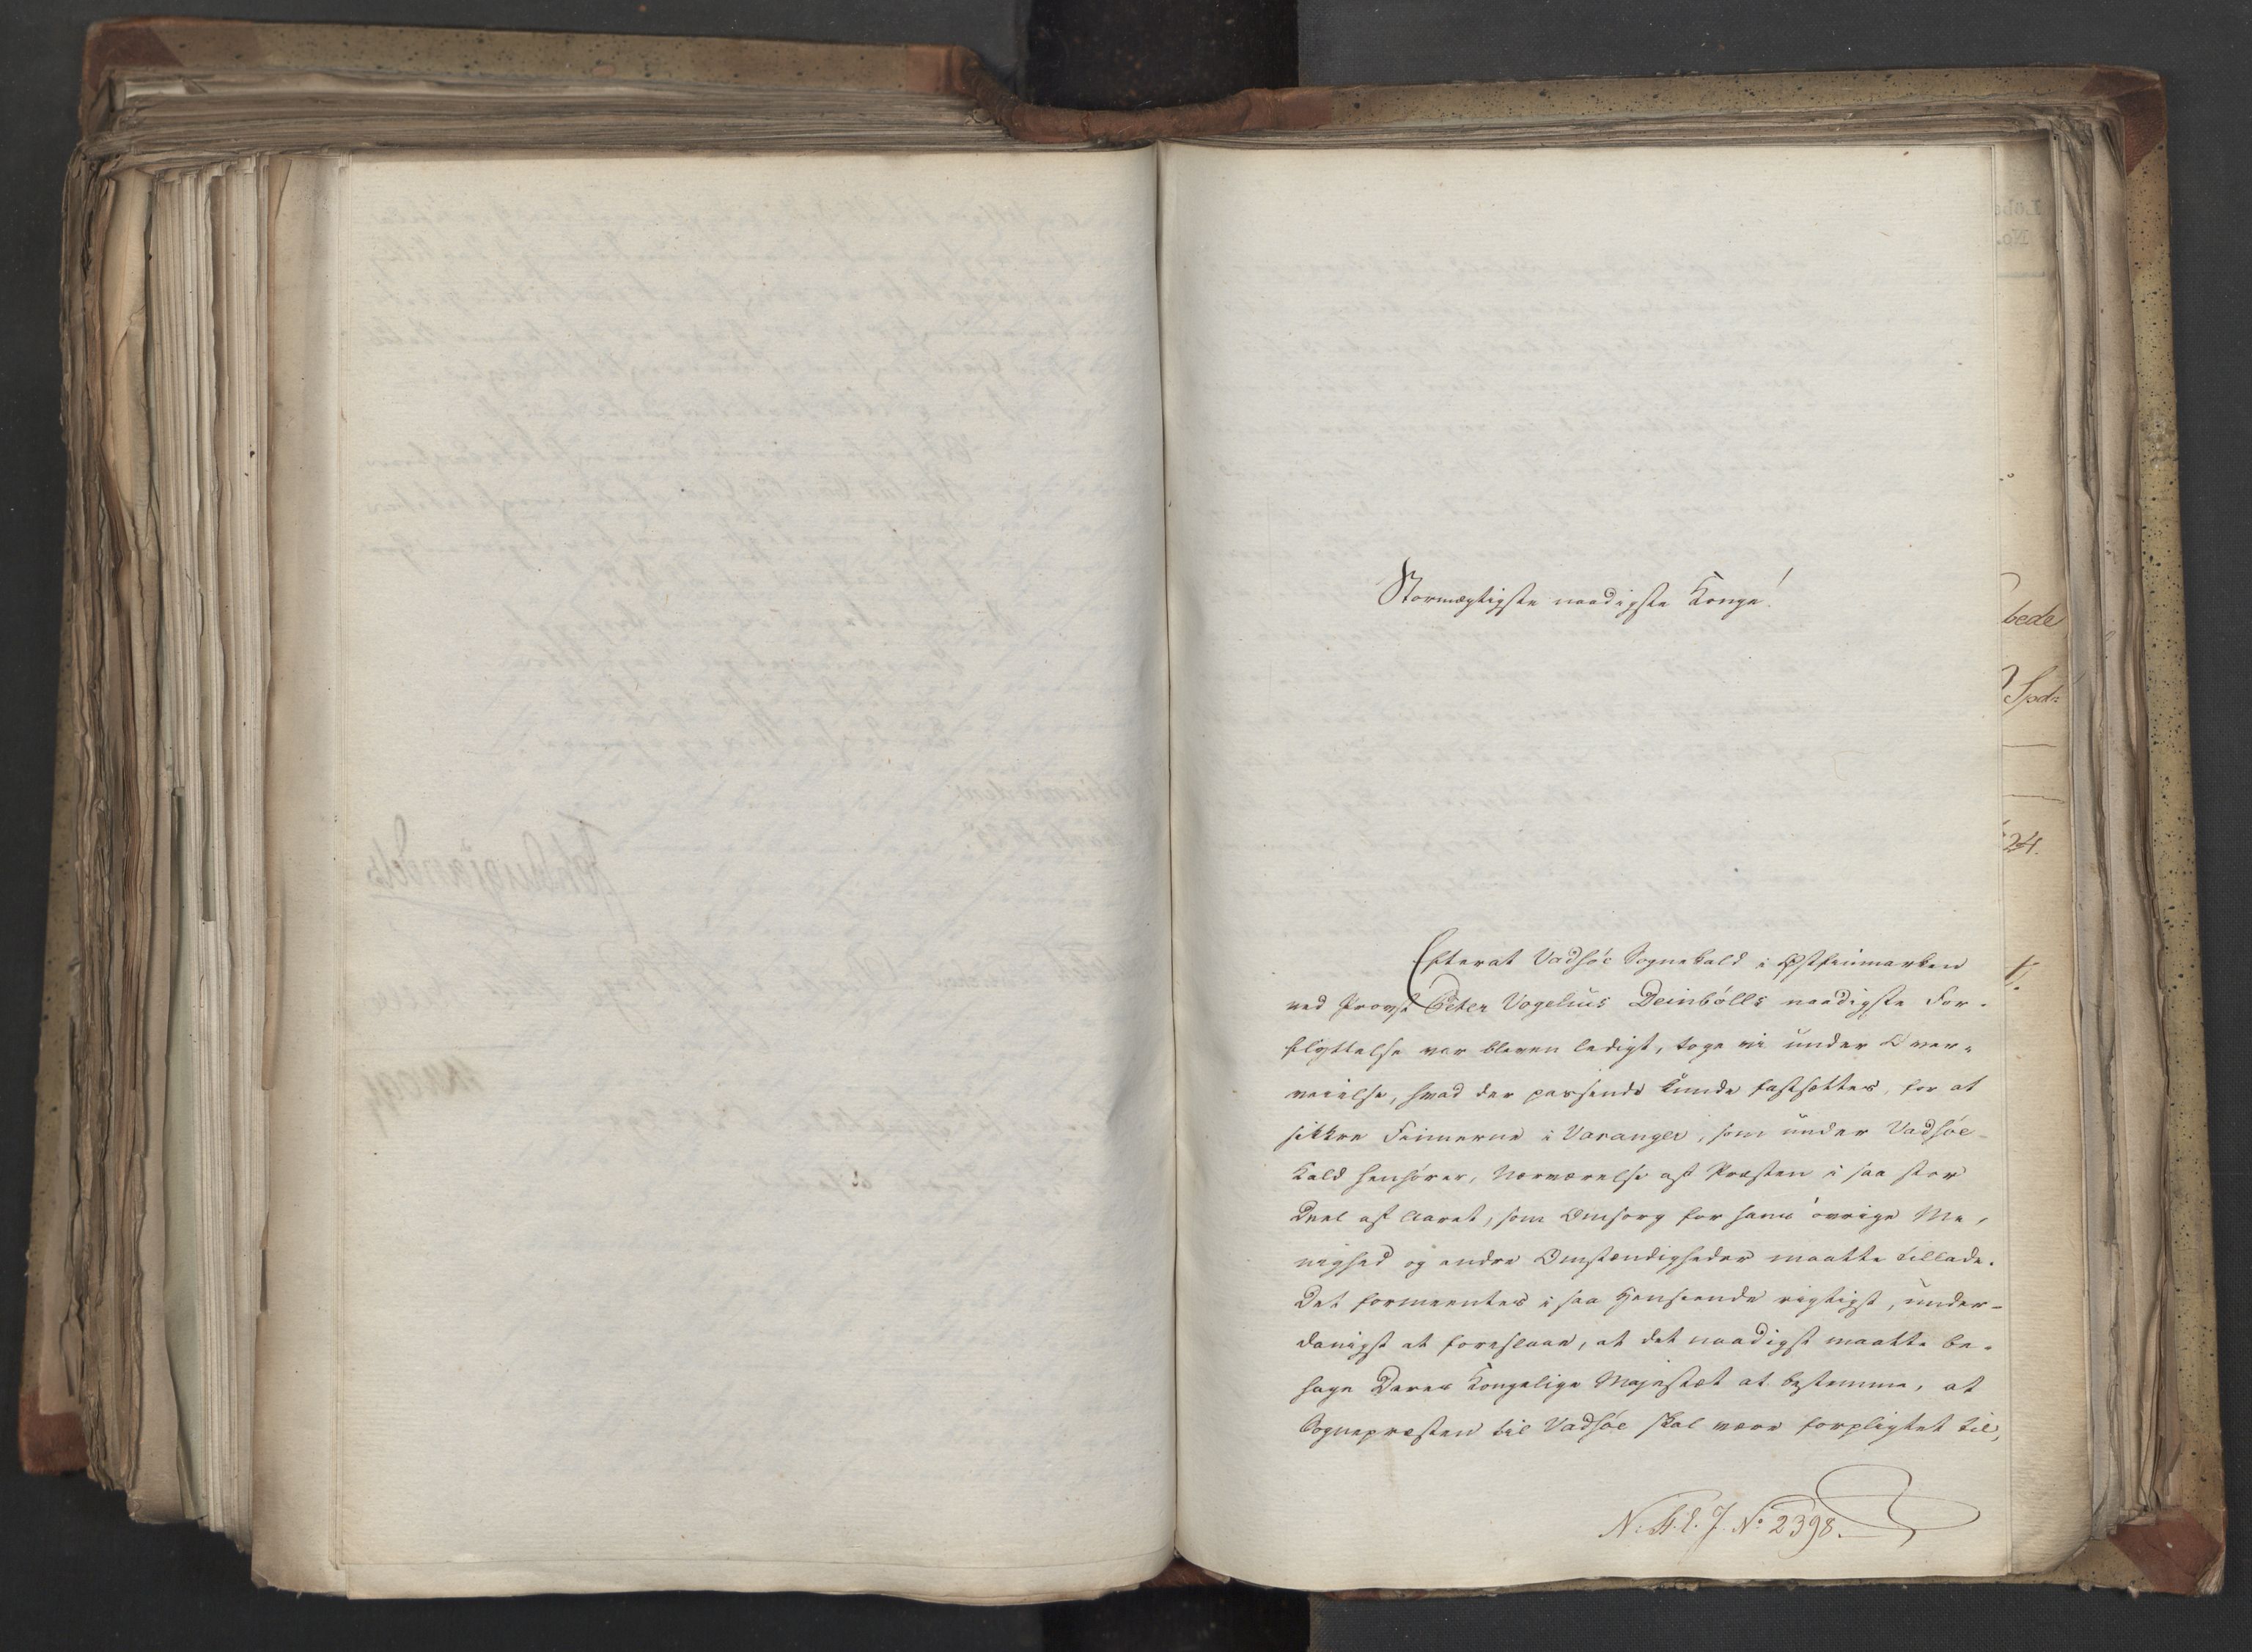 Stormægtigste naadigste Konge!
Efterat Vadsöe Sognekald i Østfinmarken
ved Provst Peter Vogelius Deinbölls naadigste For-
flyttelse var bleven ledigt, toge vi under Over-
veielse, hvad der passende kunde fastsættes, for at
sikkre Finnerne i Varanger, som under Vadsöe
Kald henhörer, Nærværelse af Præsten i saa stor
Deel af Aaret, som Omsorg for hans övrige Me-
nighed og andre Omstændigheder maatte tillade.
Det formeentes i saa Henseende rigtigst, under-
danigst at foreslaae, at det naadigst maatte be-
hage Deres Kongelige Majestæt at bestemme, at
Sognepræsten til Vadsöe skal være forpligtet til,
No 2398.
bede
Spd:
24.
t.